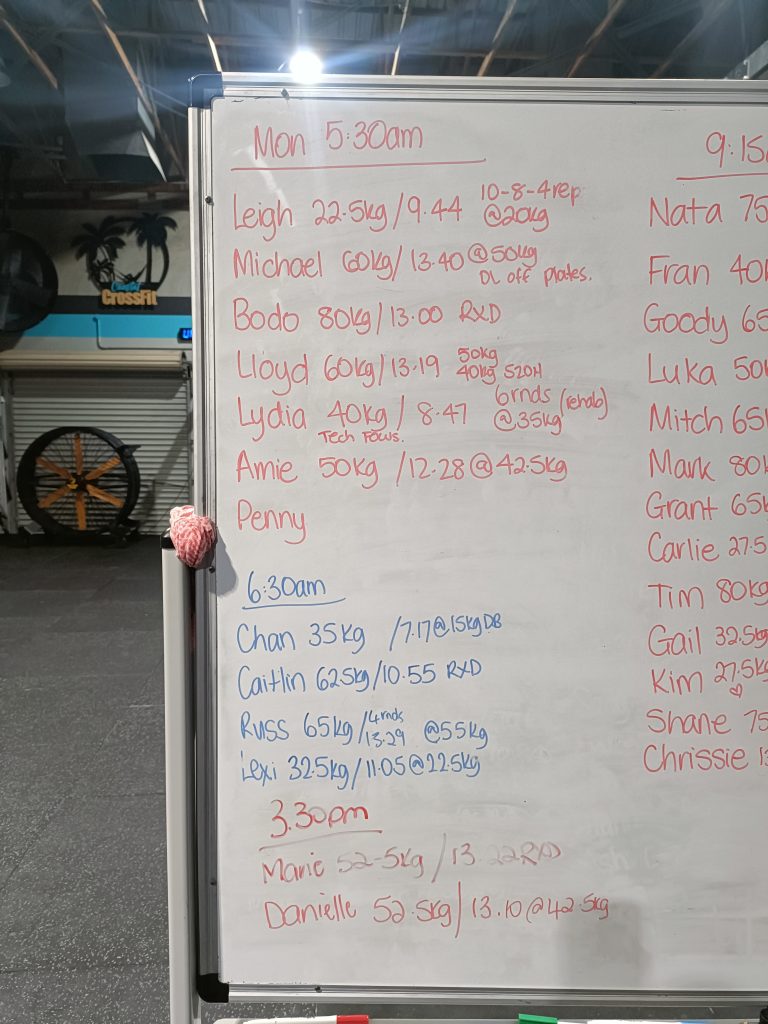 Mon 5:30am
Leigh 22.5kg/9.44 10-8-4rep @20kg
Michael 60kg/13.40 @50kg
DL off plates.
Bodo 80kg/13.00 RXD
Lloyd 60kg/13.19 50kg
40kg S2OH
Lydia 40kg/8.47 6rnds (rehab) @35kg
Tech Focus.
Amie 50kg/12.28@42.5kg
Penny
6:30am
Chan 35kg /7.17@15kg DB
Caitlin 62.5kg/10.55 RXD
Russ 65kg/4rnds 13.29 @55kg
Lexi 32.5kg/11.05@22.5kg
3.30pm
Marie 52-5kg/13.22RXD
Danielle 52.5kg/13.10@42.5kg
9:15
Nata 75
Fran 40
Goody 65
Luka 50
Mitch 65
Mark 80
Grant 65
Carlie 27.5
Tim 80kg
Gail 32.5kg
Kim 27.5k
Shane 75
Chrissie
Coastal
CrossFit